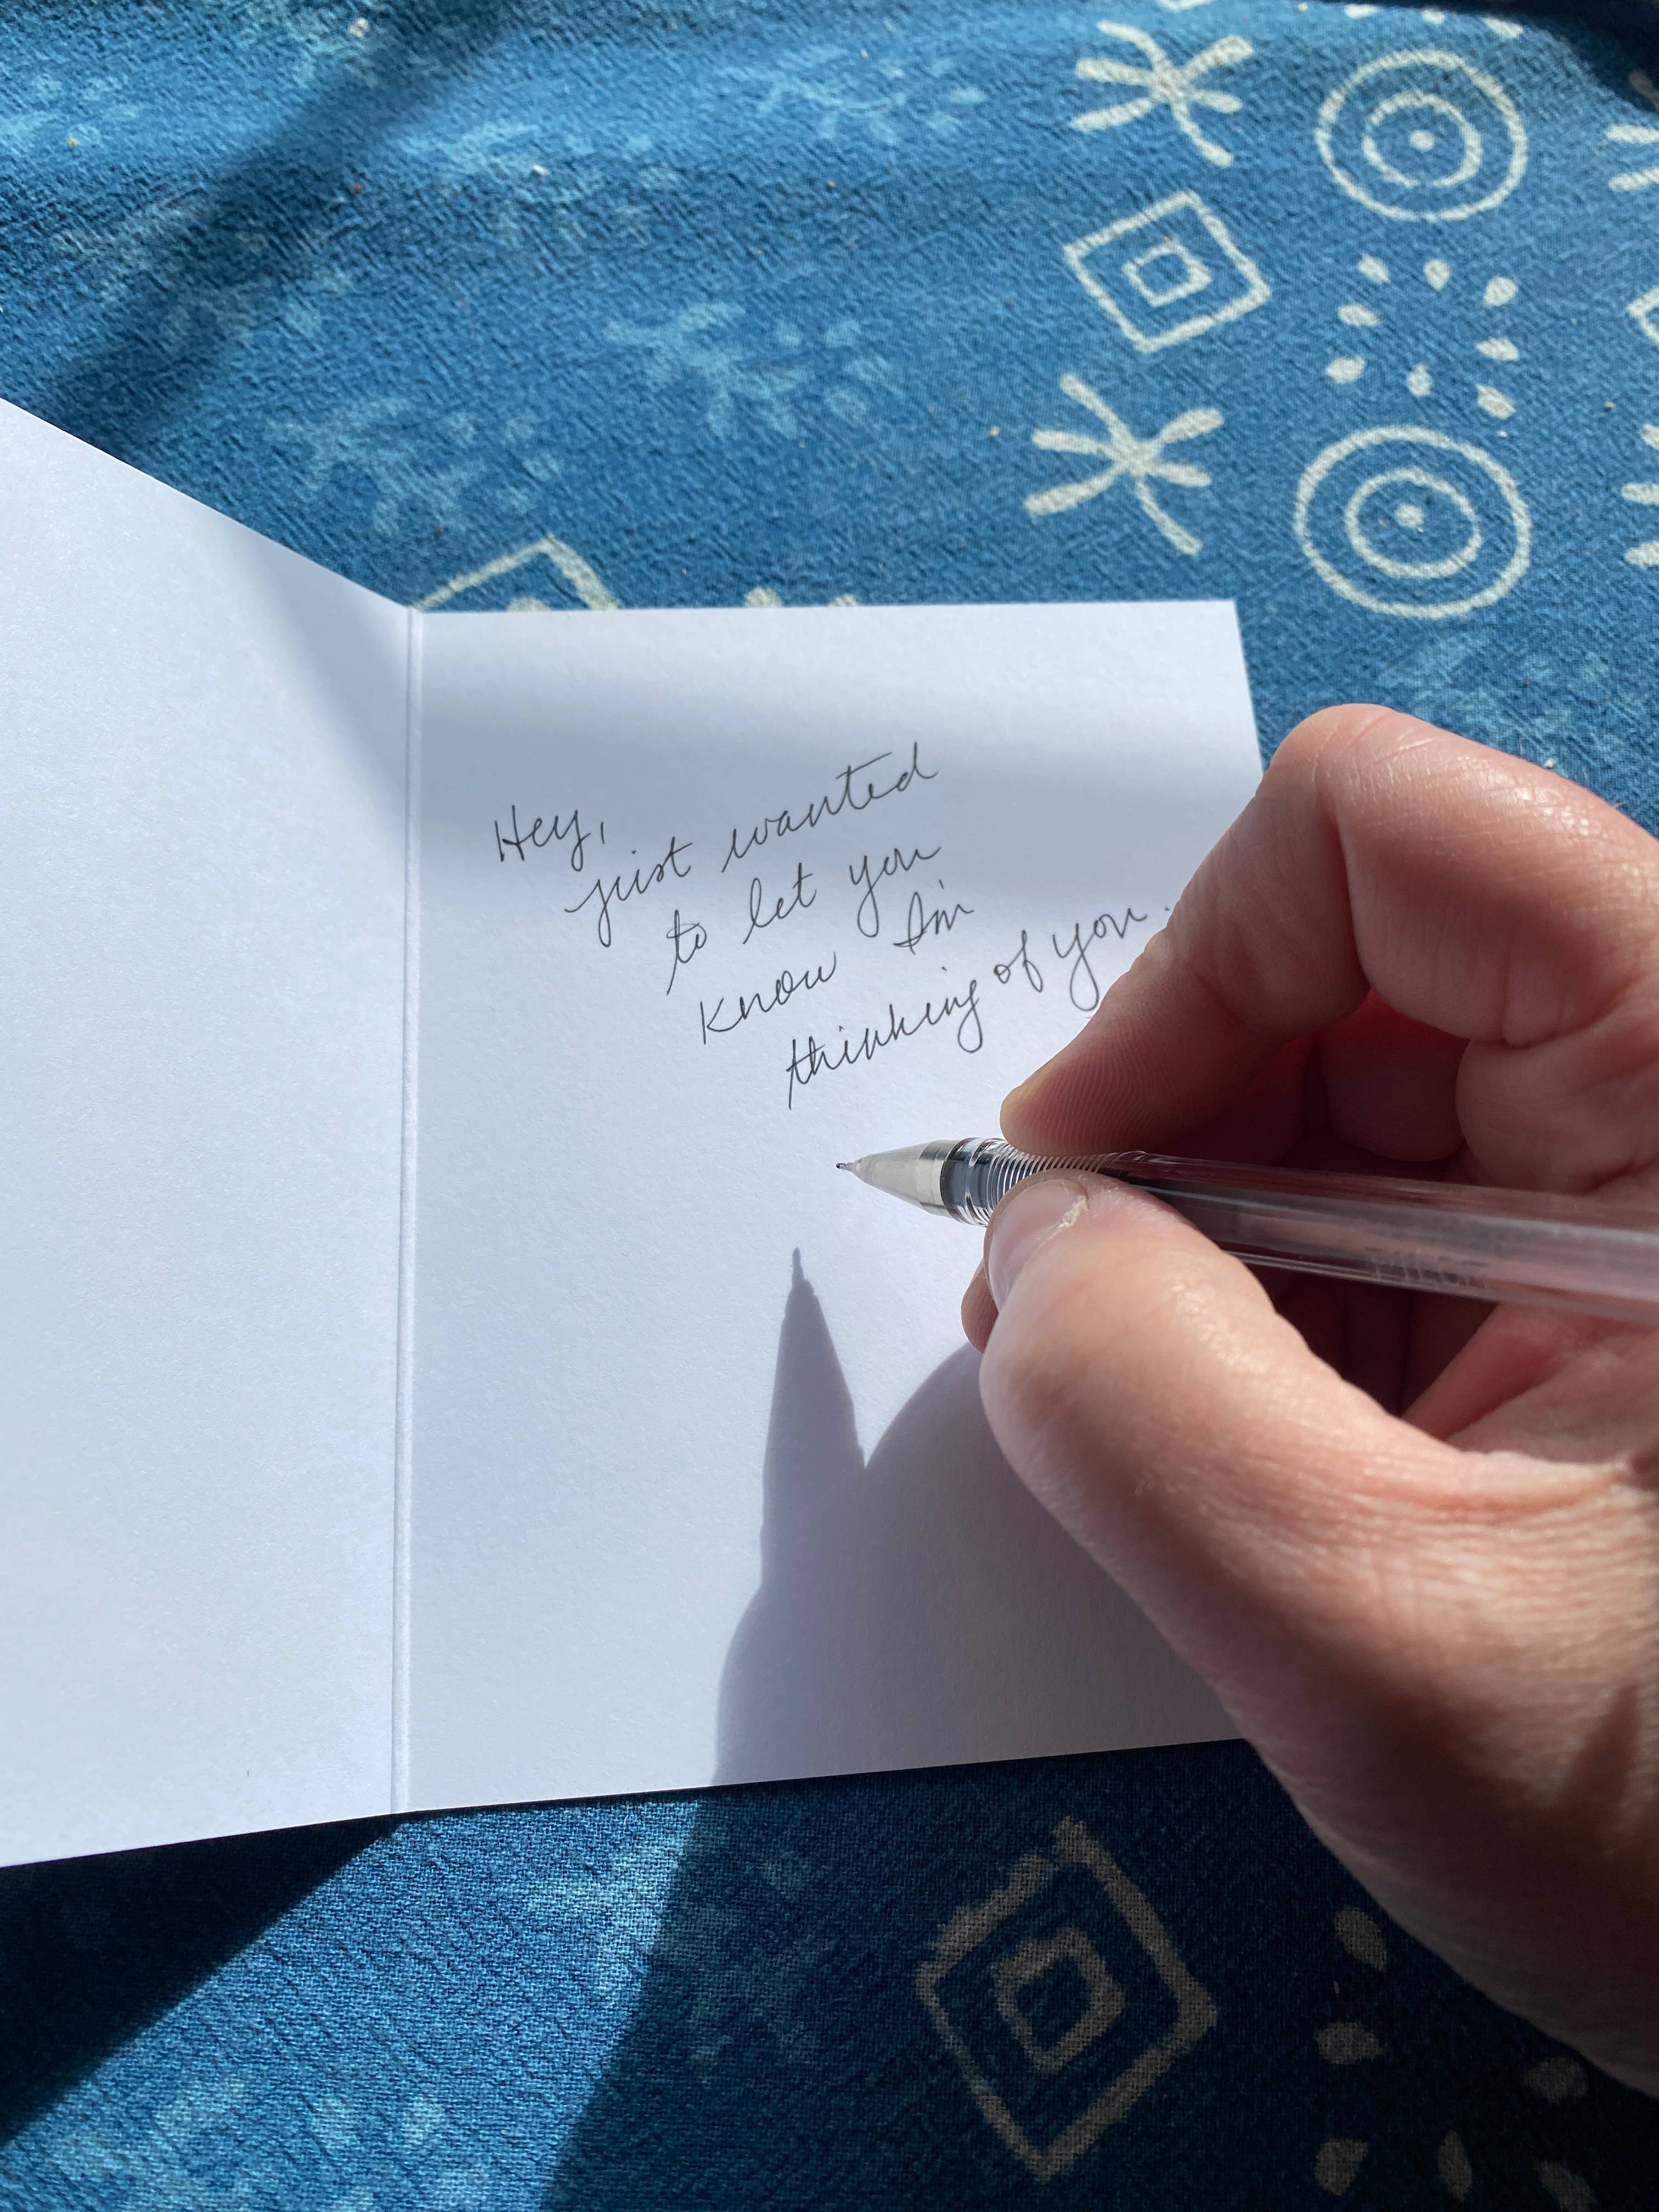 Hey,
just wanted
to let you
know I'm
thinking of you.
PILOT